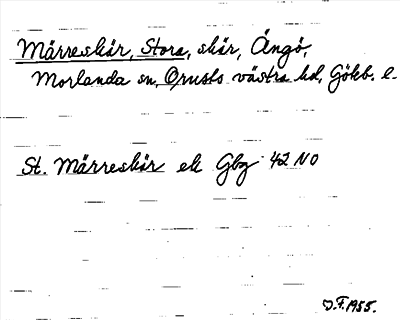 Märreskär, Stora, skär, Ängö,
Morlanda sn, Orusts västra hd, Göteb. l.
St. Märreskär ek Gbg 42 NO
J.F. 1955.